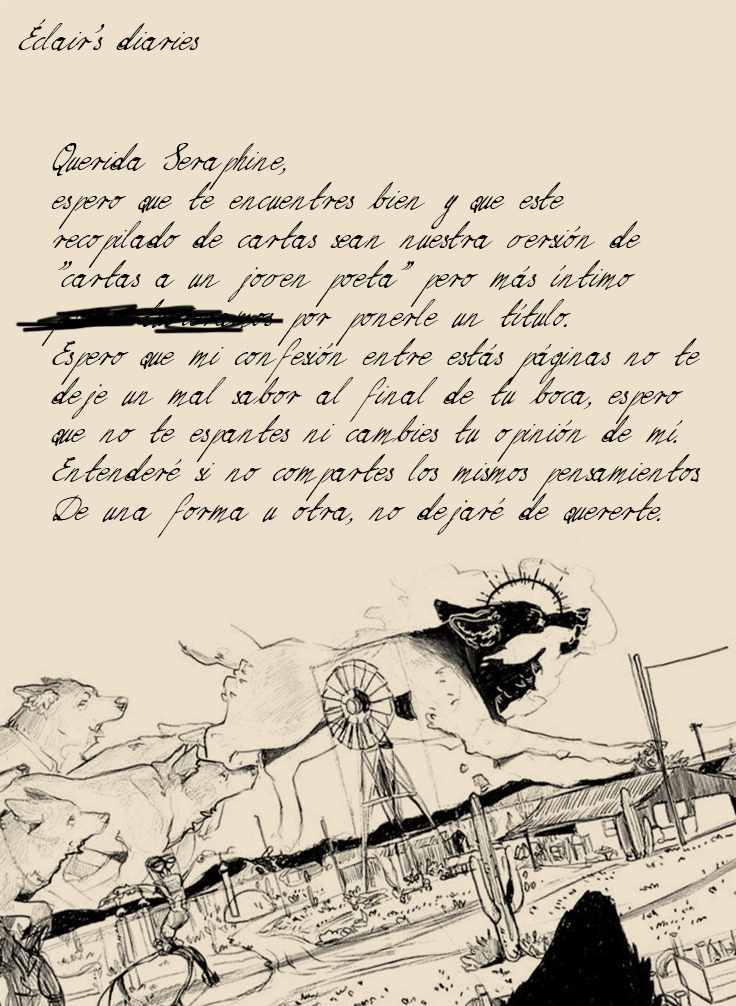 Éclair's diaries
Querida Seraphine,
espero que te encuentres bien y que este
recopilado de cartas sean nuestra versión de
"cartas a un joven poeta" pero más íntimo
por ponerle un título.
Espero que mi confesión entre estás páginas no te
deje un mal sabor al final de tu boca, espero
que no te espantes ni cambies tu opinión de mí.
Entenderé si no compartes los mismos pensamientos
De una forma u otra, no dejaré de quererte.